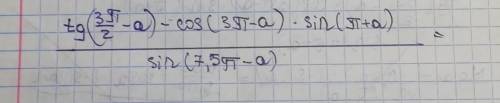 tg(3π/2 - a) - cos(3π - a) · sin(π + a)
sin(7,5π - a)
=